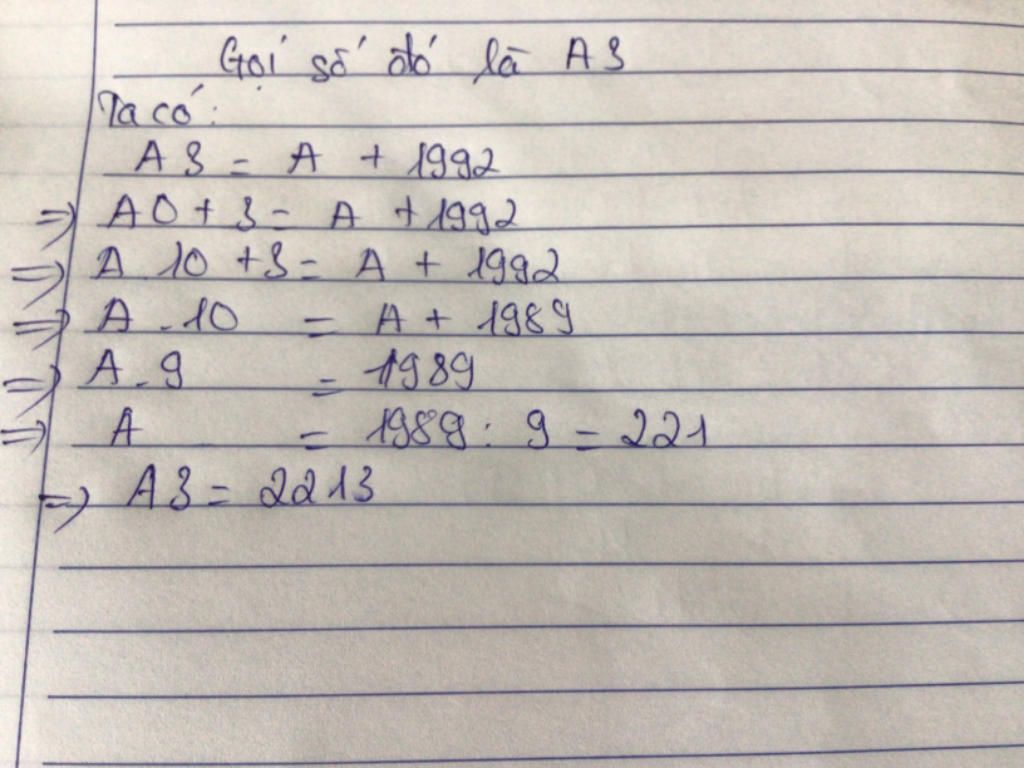 Gọi số đó là A3
Ta có:
A3 = A + 1992
=) A0 + 3 = A + 1992
=) A . 10 + 3 = A + 1992
=) A . 10 = A + 1989
=) A . 9 = 1989
=) A = 1989 : 9 = 221
=) A3 = 2213